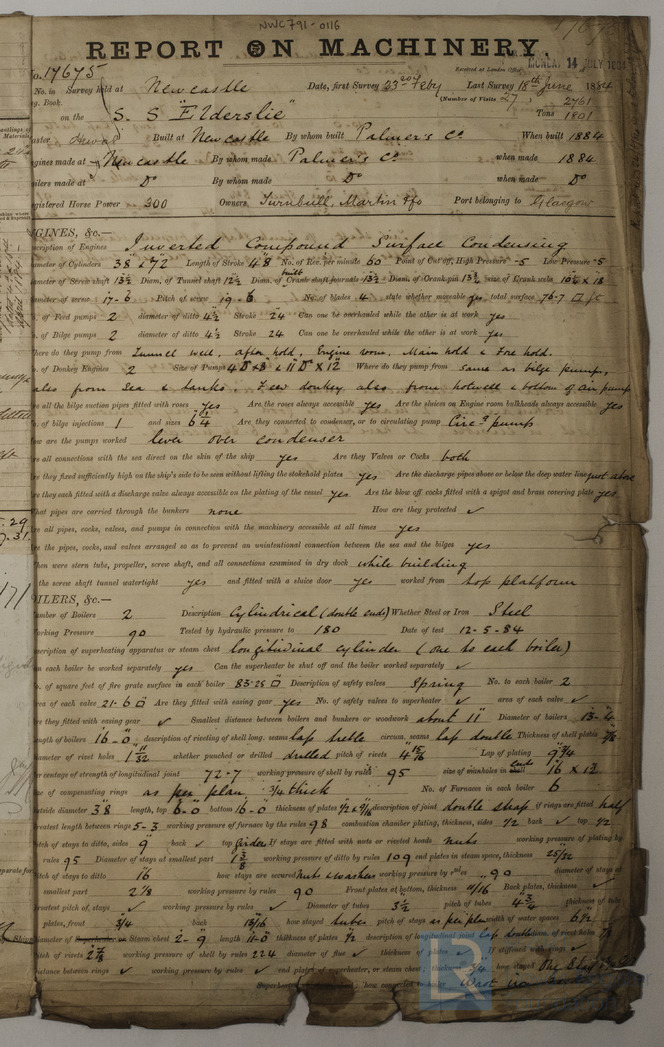 NWC791-0116
REPORT ON MACHINERY.
No. 17675 Received at London Office MONDAY 14 JULY 1884
No. in Survey held at Newcastle Date, first Survey 23rd Feby Last Survey 18th June 1884
Book. (Number of Visits 27) 2761
on the S. S "Elderslie" Tons 1801
Master Built at Newcastle By whom built Palmer's Co When built 1884
Engines made at Newcastle By whom made Palmer's Co when made 1884
Boilers made at Do By whom made Do when made Do
Registered Horse Power 300 Owners Turnbull, Martin & Co Port belonging to Glasgow
ENGINES, &c.—
Description of Engines Inverted Compound Surface Condensing
Diameter of Cylinders 38" & 72" Length of Stroke 48" No. of Rev. per minute 60 Point of Cut off, High Pressure .5 Low Pressure .5
Diameter of Screw shaft 13½ Diam. of Tunnel shaft 12½ Diam. of Crank shaft journals built 13½ Diam. of Crank pin 13½ size of Crank webs 10½ x 18
Diameter of screw 17-6 Pitch of screw 19-6 No. of blades 4 state whether moveable yes total surface 76.7
No. of Feed pumps 2 diameter of ditto 4½ Stroke 24" Can one be overhauled while the other is at work yes
No. of Bilge pumps 2 diameter of ditto 4½ Stroke 24 Can one be overhauled while the other is at work yes
Where do they pump from Tunnel well, after hold, Engine room, Main hold & Fore hold.
No. of Donkey Engines 2 Size of Pumps Where do they pump from same as bilge pumps,
also from Sea & tanks. Feed donkey also from hotwell & bottom of air pump
Are all the bilge suction pipes fitted with roses yes Are the roses always accessible yes Are the sluices on Engine room bulkheads always accessible yes
No. of bilge injections 1 and sizes Are they connected to condenser, or to circulating pump Circg pump
How are the pumps worked lever over condenser
Are all connections with the sea direct on the skin of the ship yes Are they Valves or Cocks both
Are they fixed sufficiently high on the ship's side to be seen without lifting the stokehold plates yes Are the discharge pipes above or below the deep water line just above
Are they each fitted with a discharge valve always accessible on the plating of the vessel yes Are the blow off cocks fitted with a spigot and brass covering plate yes
What pipes are carried through the bunkers none How are they protected ✓
Are all pipes, cocks, valves, and pumps in connection with the machinery accessible at all times yes
Are the pipes, cocks, and valves arranged so as to prevent an unintentional connection between the sea and the bilges yes
When were stern tube, propeller, screw shaft, and all connections examined in dry dock while building
Is the screw shaft tunnel watertight yes and fitted with a sluice door yes worked from top platform
BOILERS, &c.—
Number of Boilers 2 Description Cylindrical (double ends) Whether Steel or Iron Steel
Working Pressure 90 Tested by hydraulic pressure to 180 Date of test 12-5-84
Description of superheating apparatus or steam chest longitudinal cylinder (one to each boiler)
Can each boiler be worked separately yes Can the superheater be shut off and the boiler worked separately ✓
No. of square feet of fire grate surface in each boiler 83.25 □ Description of safety valves Spring No. to each boiler 2
Area of each valve 21.6 □ Are they fitted with easing gear yes No. of safety valves to superheater ✓ area of each valve ✓
Are they fitted with easing gear ✓ Smallest distance between boilers and bunkers or woodwork about 11" Diameter of boilers 13-4
Length of boilers 16-0 description of riveting of shell long. seams lap treble circum. seams lap double Thickness of shell plates
Diameter of rivet holes 1 11/32 whether punched or drilled drilled pitch of rivets 4 15/16 Lap of plating 9¾
Percentage of strength of longitudinal joint 72.7 working pressure of shell by rules 95 size of manholes in ends 16 x 12
Size of compensating rings as per plan ¾ thick No. of Furnaces in each boiler 6
Outside diameter 38 length, top 6-0 bottom 16-0 thickness of plates ½ & 9/16 description of joint double strap if rings are fitted half
Greatest length between rings 5-3 working pressure of furnace by the rules 98 combustion chamber plating, thickness, sides ½ back ✓ top ½
Pitch of stays to ditto, sides 9" back ✓ top girders If stays are fitted with nuts or riveted heads nuts working pressure of plating by
rules 95 Diameter of stays at smallest part 1⅜ working pressure of ditto by rules 109 end plates in steam space, thickness 25/32
Pitch of stays to ditto 16 how stays are secured nuts & washers working pressure by rules 90 diameter of stays at
smallest part 2⅛ working pressure by rules 90 Front plates at bottom, thickness 11/16 Back plates, thickness ✓
Greatest pitch of stays ✓ working pressure by rules ✓ Diameter of tubes 3½ pitch of tubes thickness of tube
plates, front ¾ back 13/16 how stayed tubes pitch of stays as per plan width of water spaces 6½
Diameter of Superheater or Steam chest 2-9 length 11-0 thickness of plates ½ description of longitudinal joint lap double diam. of rivet holes
Pitch of rivets 2⅞ working pressure of shell by rules 224 diameter of flue ✓ thickness of plates ✓ If stiffened with rings ✓
Distance between rings ✓ working pressure by rules ✓ end plates of superheater, or steam chest; thickness how stayed One Stay
Superheater